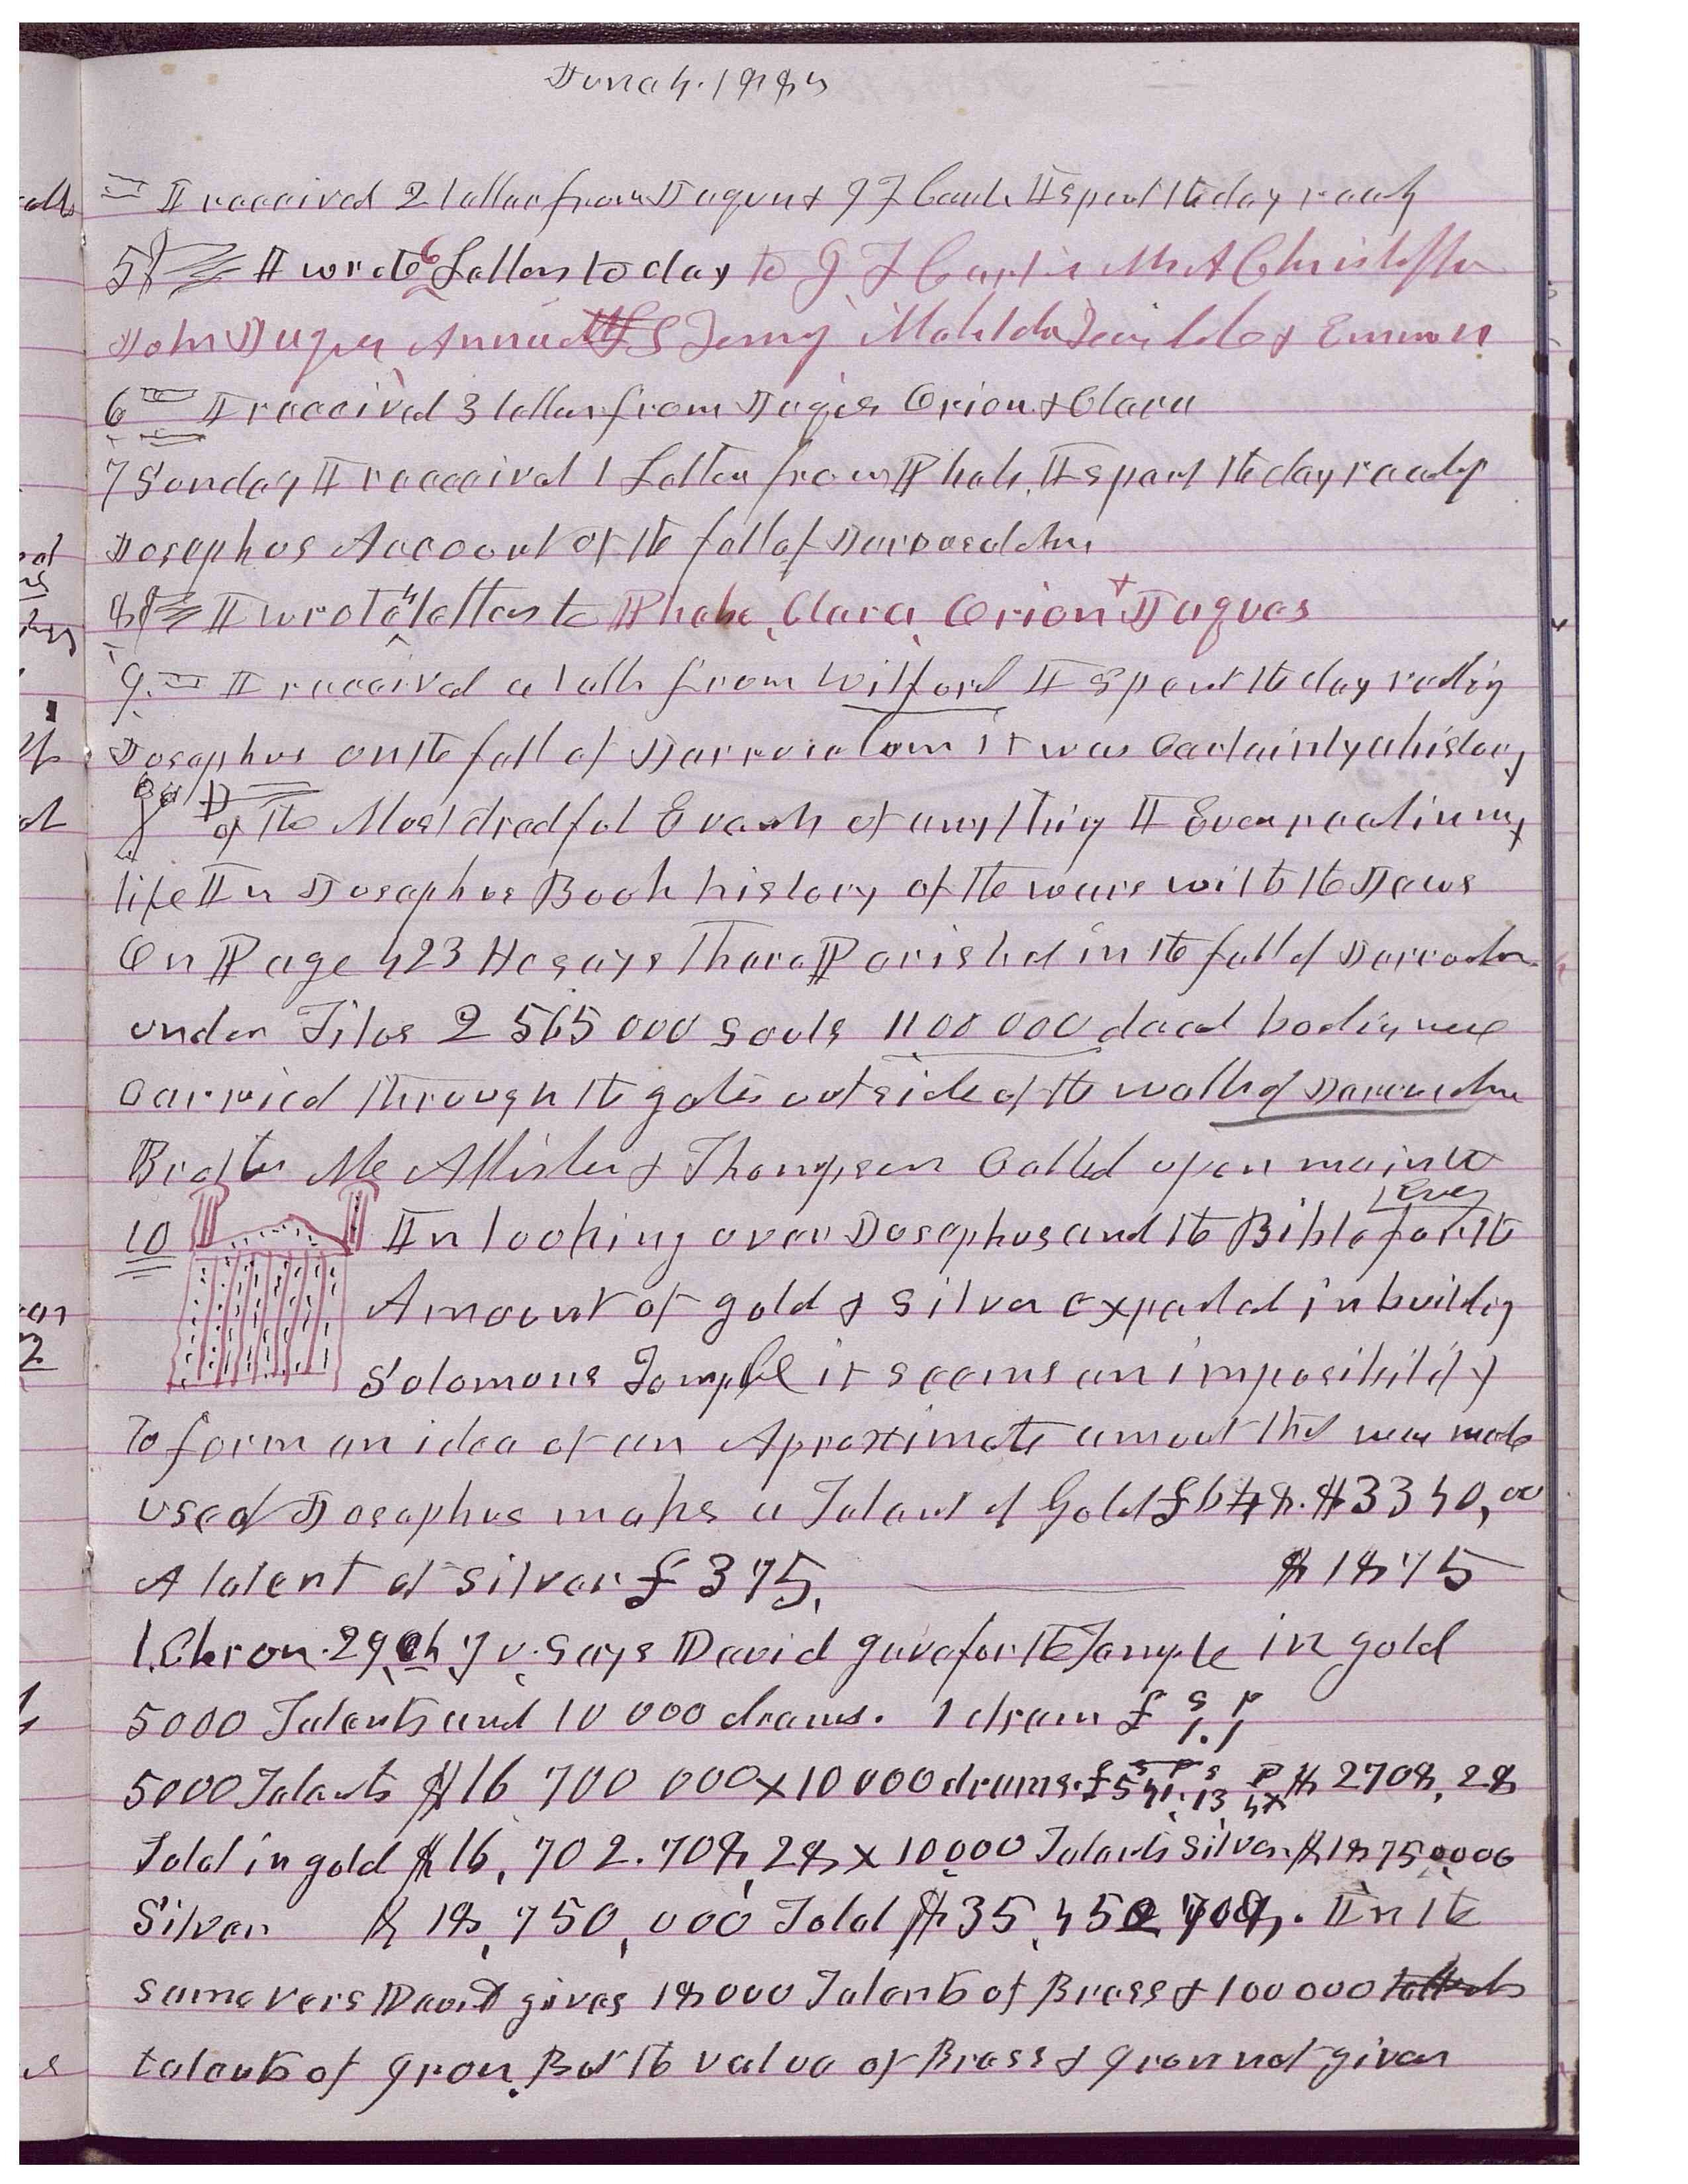 June 4. 1885
I received 2 letters from Jaques & I spent the day readg
5 I wrote 6 Letters to day to G F Curtis Mr A Christoffer
John Jaques Annie S Terry Matilda & Emma
6 I received 3 letters from Jaques Orion & Clara
7 Sunday I received 1 Letter from Phebe. I spent the day readg
Josephus Account of the fall of Jarrusalem
8 I wrote 4 letters to Phebe, Clara, Orion & Jaques
9. I received a letter from Wilford I spent the day reding
Josephus on the fall of Jarrusalem it was Certainly a history
of the Most dredful Events of any thing I Ever read in my
life In Josephus Book history of the wars with the Jews
On Page 423 He says Thare Perished in the fall of Jarrusalem
under Titus 2 565 000 Souls 1100 000 dead bodies were
Carried through the gates outside of the walls of Jarrusalem
Brother Mc Allister & Thompson Called upon me in the
Eveng
10 In looking over Josephus and the Bible for the
Amount of gold & silver expended in buildig
Solomons Temple it seems an imposibility
To form an idea of an Aproximate amount that was made
used Josephus makes a Talent of Gold £648. $3340,00
A talent of silver £375. $1875
1 Chron. 29 ch 7 v. Says David gave for the Temple in gold
5000 Talents and 10 000 drams. 1 dram £ s p 1.1
5000 Talents $16 700 000 x 10 000 drams £541.13 s 4 p $2708,28
Total in gold $16,702.708,28 x 10000 Talents Silver $18750000
Silver $18,750,000 Total $35,452 708. In the
same vers David gives 18000 Talents of Brass & 100 000 talents
talents of Iron. But the value of Brass & Iron not given